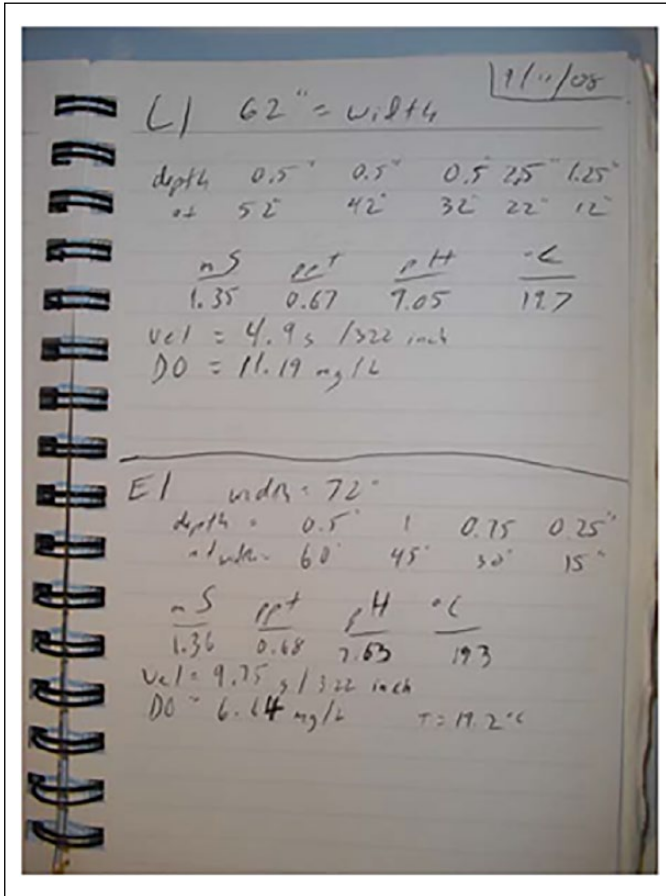 9/11/08
C1 62" = width
depth 0.5" 0.5" 0.5" 2.5" 1.25"
at 52" 42" 32" 22" 12"
mS ppt pH °C
1.35 0.67 9.05 19.7
Vel = 4.9 s /322 inch
DO = 11.19 mg/L
E1 width = 72"
depth = 0.5" 1 0.75 0.25"
at width = 60" 45" 30" 15"
mS ppt pH °C
1.36 0.68 7.63 19.3
Vel = 9.75 s/322 inch
DO = 6.64 mg/L T=19.2°C